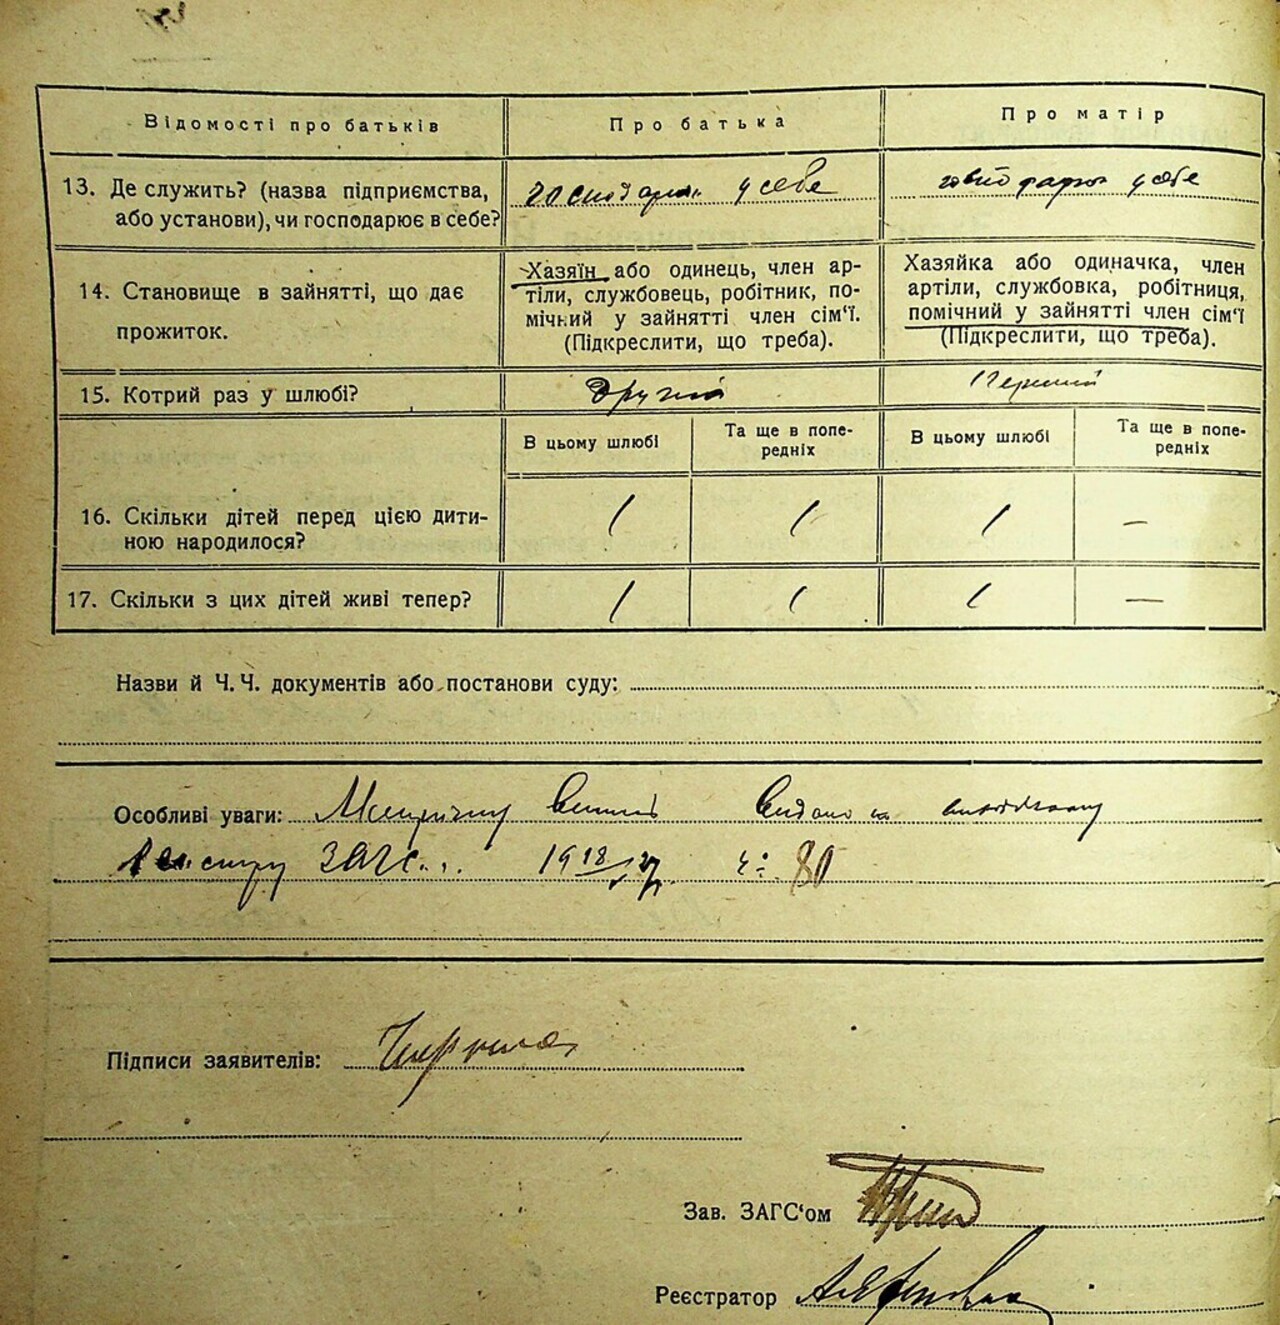 Відомості про батьків
Про батька
Про матір
13. Де служить? (назва підприємства, або установи), чи господарює в себе?
господарює у себе
у себе
14. Становище в зайнятті, що дає прожиток.
Хазяїн або одинець, член ар-
тіли, службовець, робітник, по-
мічний у зайнятті член сім‘ї.
(Підкреслити, що треба).
Хазяйка або одиначка, член
артіли, службовка, робітниця,
помічний у зайнятті член сім‘ї
(Підкреслити, що треба).
15. Котрий раз у шлюбі?
другий
Перший
В цьому шлюбі
Та ще в попе-
редніх
В цьому шлюбі
Та ще в попе-
редніх
16. Скільки дітей перед цією дити-
ною народилося?
/ / / —
17. Скільки з цих дітей живі тепер?
/ / / —
Назви й Ч. Ч. документів або постанови суду:
Особливі уваги: Метричну Видано
ЗАГС 80
Підписи заявителів:
Зав. ЗАГС‘ом
Реєстратор